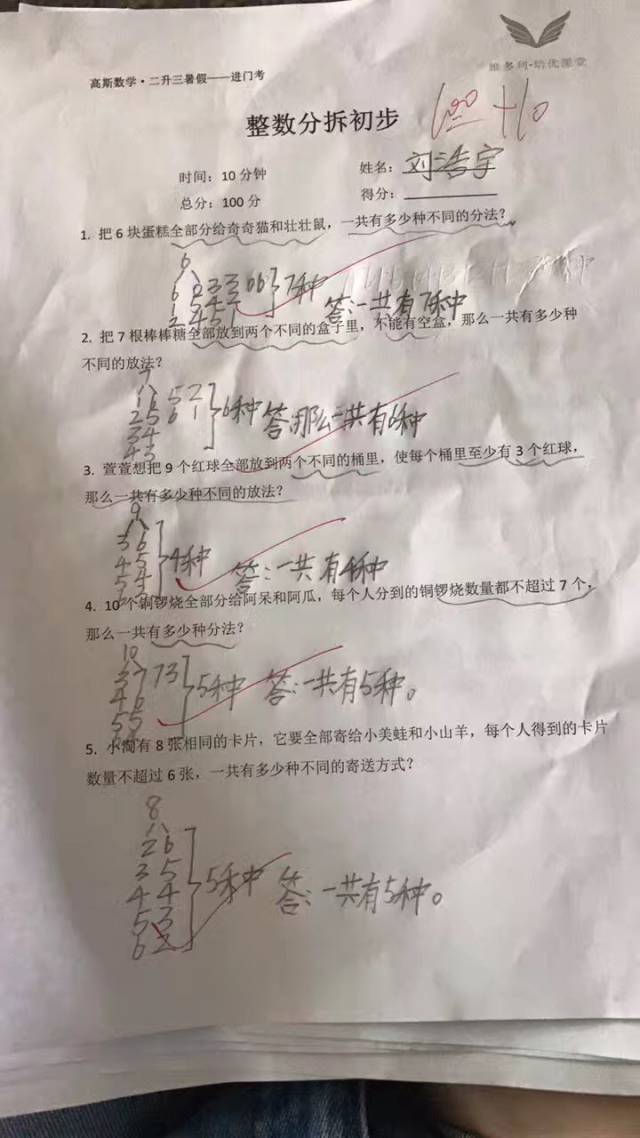 维多利·培优课堂
高斯数学·二升三暑假——进门考
整数分拆初步
100 +10
时间：10分钟
姓名：刘浩宇
总分：100分
得分：
1. 把6块蛋糕全部分给奇奇猫和壮壮鼠，一共有多少种不同的分法？
6
7种
答：一共有7种
2. 把7根棒棒糖全部放到两个不同的盒子里，不能有空盒，那么一共有多少种
不同的放法？
7
1 6 5 2
2 5 6 1
3 4
4 3
6种 答：那么一共有6种
3. 萱萱想把9个红球全部放到两个不同的桶里，使每个桶里至少有3个红球，
那么一共有多少种不同的放法？
9
3 6
4 5
5 4
4种 答：一共有4种
4. 10个铜锣烧全部分给阿呆和阿瓜，每个人分到的铜锣烧数量都不超过7个，
那么一共有多少种分法？
10
3 7 7 3
4 6
5 5
5种 答：一共有5种。
5. 小淘有8张相同的卡片，它要全部寄给小美蛙和小山羊，每个人得到的卡片
数量不超过6张，一共有多少种不同的寄送方式？
8
2 6
3 5
4 4
5 3
6 2
5种 答：一共有5种。